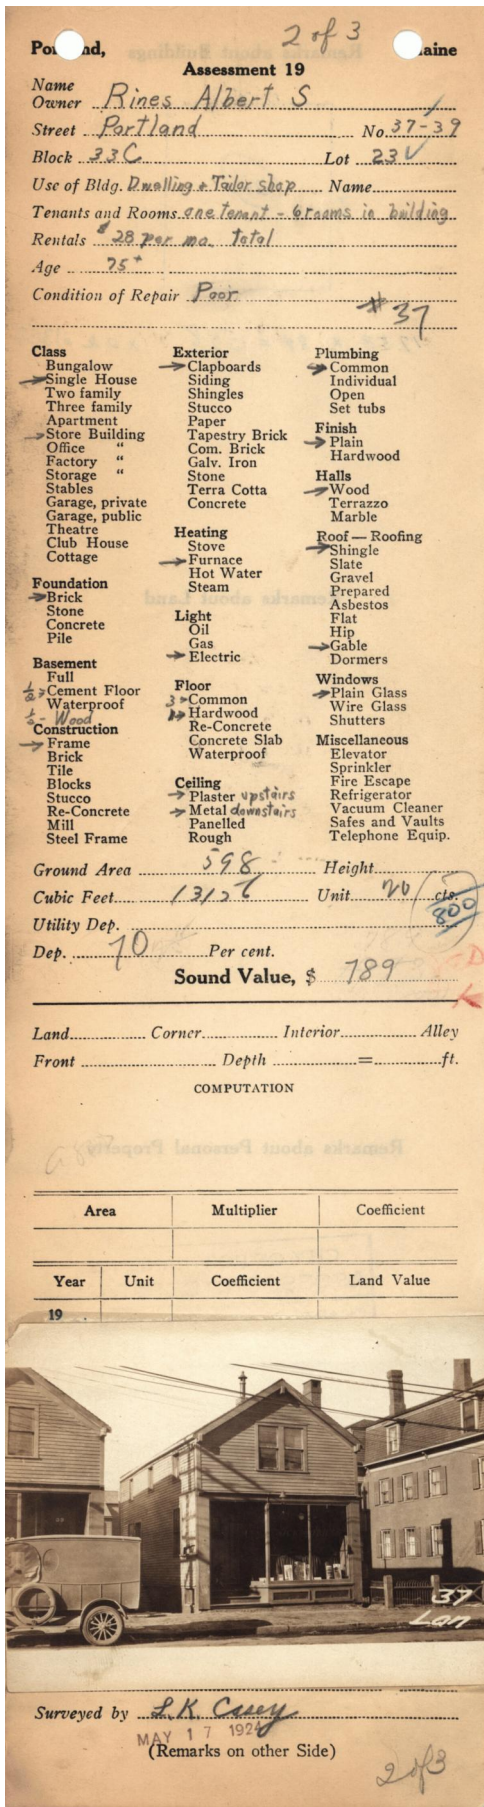 2 of 3
Po nd, aine
Assessment 19
Name
Owner Rines Albert S
Street Portland No. 37-39
Block 33C Lot 23
Use of Bldg. Dwelling + Tailor shop Name
Tenants and Rooms one tenant - 6 rooms in building
Rentals $28 per mo. total
Age 75+
Condition of Repair Poor
#37
Class
Bungalow
Single House
Two family
Three family
Apartment
Store Building
Office "
Factory "
Storage "
Stables
Garage, private
Garage, public
Theatre
Club House
Cottage
Foundation
Brick
Stone
Concrete
Pile
Basement
Full
½ Cement Floor
Waterproof
½ - Wood
Construction
Frame
Brick
Tile
Blocks
Stucco
Re-Concrete
Mill
Steel Frame
Exterior
Clapboards
Siding
Shingles
Stucco
Paper
Tapestry Brick
Com. Brick
Galv. Iron
Stone
Terra Cotta
Concrete
Heating
Stove
Furnace
Hot Water
Steam
Light
Oil
Gas
Electric
Floor
3 Common
Hardwood
Re-Concrete
Concrete Slab
Waterproof
Ceiling
Plaster upstairs
Metal downstairs
Panelled
Rough
Plumbing
Common
Individual
Open
Set tubs
Finish
Plain
Hardwood
Halls
Wood
Terrazzo
Marble
Roof — Roofing
Shingle
Slate
Gravel
Prepared
Asbestos
Flat
Hip
Gable
Dormers
Windows
Plain Glass
Wire Glass
Shutters
Miscellaneous
Elevator
Sprinkler
Fire Escape
Refrigerator
Vacuum Cleaner
Safes and Vaults
Telephone Equip.
Ground Area 598 Height
Cubic Feet 13156 Unit 20 cts.
800
Utility Dep.
Dep. 70 Per cent.
Sound Value, $ 789
Land Corner Interior Alley
Front Depth = ft.
COMPUTATION
Area Multiplier Coefficient
Year Unit Coefficient Land Value
19
37
Lan
Surveyed by L.K. Casey
MAY 17 1924
(Remarks on other Side)
2 of 3